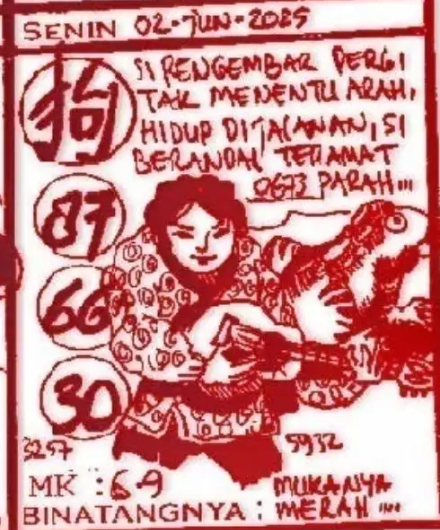 SENIN 02-JUN-2025
狗
SI PENGEMBAR PERGI
TAK MENENTU ARAH,
HIDUP DIJALANAN, SI
BERANDAL TERAMAT
0673 PARAH...
87
66
30
3257
5932
MK : 6-9
BINATANGNYA : MUKANYA
MERAH ...